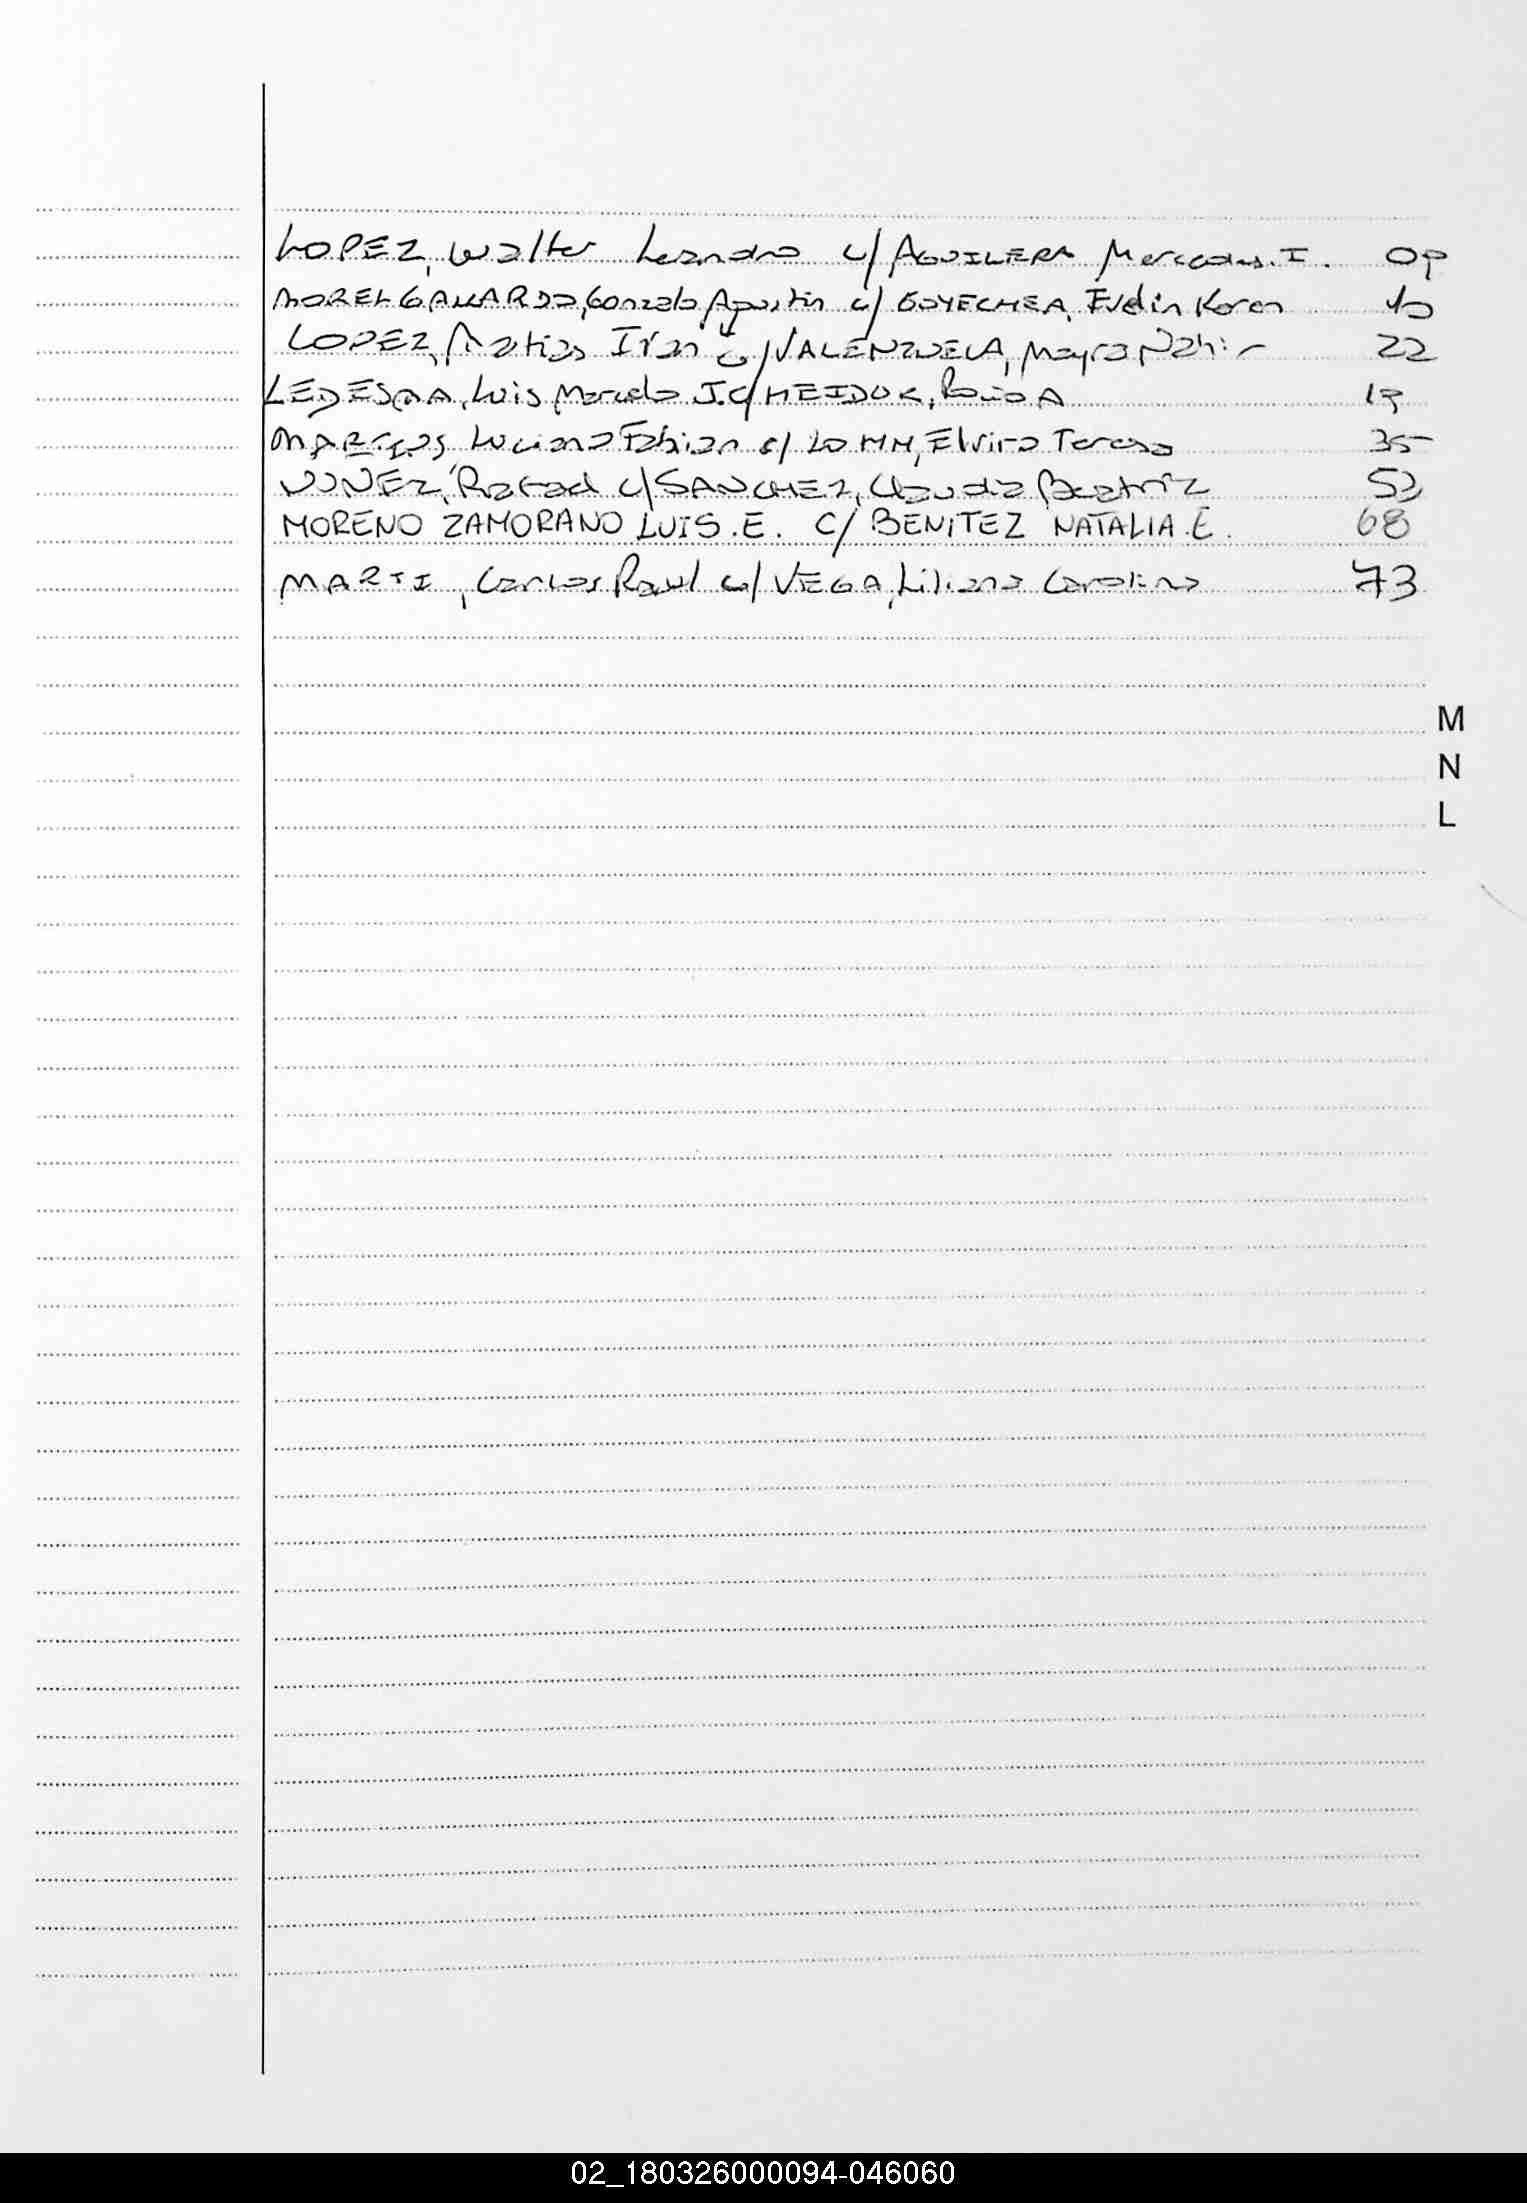 LOPEZ, Walter Leandro c/ AGUILERA Mercedes. I.
MOREL GALLARDO, Gonzalo Agustin c/ GOYECHEA, Evelin Karen
LOPEZ, Matias Ivan c/ VALENZUELA, Mayra Nahir 22
LEDESMA, Luis Marcelo J. c/ A
Luciano Fabian c/ Elvira Teresa 35
NUÑEZ, Rafael c/ SANCHEZ, Claudia Beatriz
MORENO ZAMORANO LUIS.E. C/ BENITEZ NATALIA.E. 68
MARTI, Carlos Raul c/ VEGA, Liliana Carolina 73
M
N
L
02_180326000094-046060